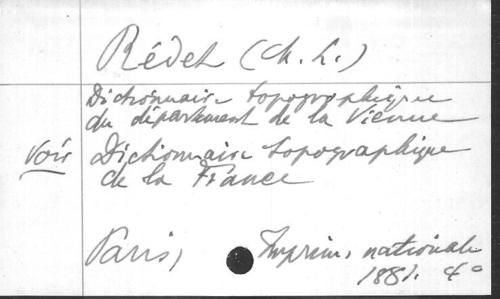 Rédet (Ch. L.)
Dictionnaire topographique
du département de la Vienne
voir Dictionnaire topographique
de la France
Paris, Imprim. nationale
1881. 4°